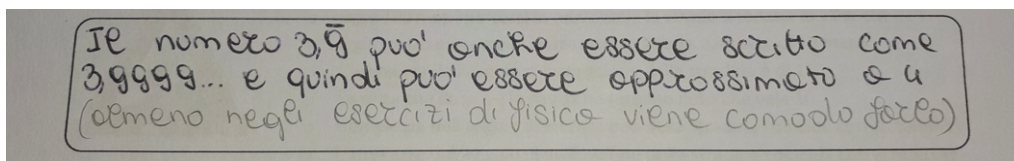 Il numero 3,9̅ puo' anche essere scritto come
3,9999... e quindi puo' essere approssimato a 4
(almeno negli esercizi di fisica viene comodo farlo)